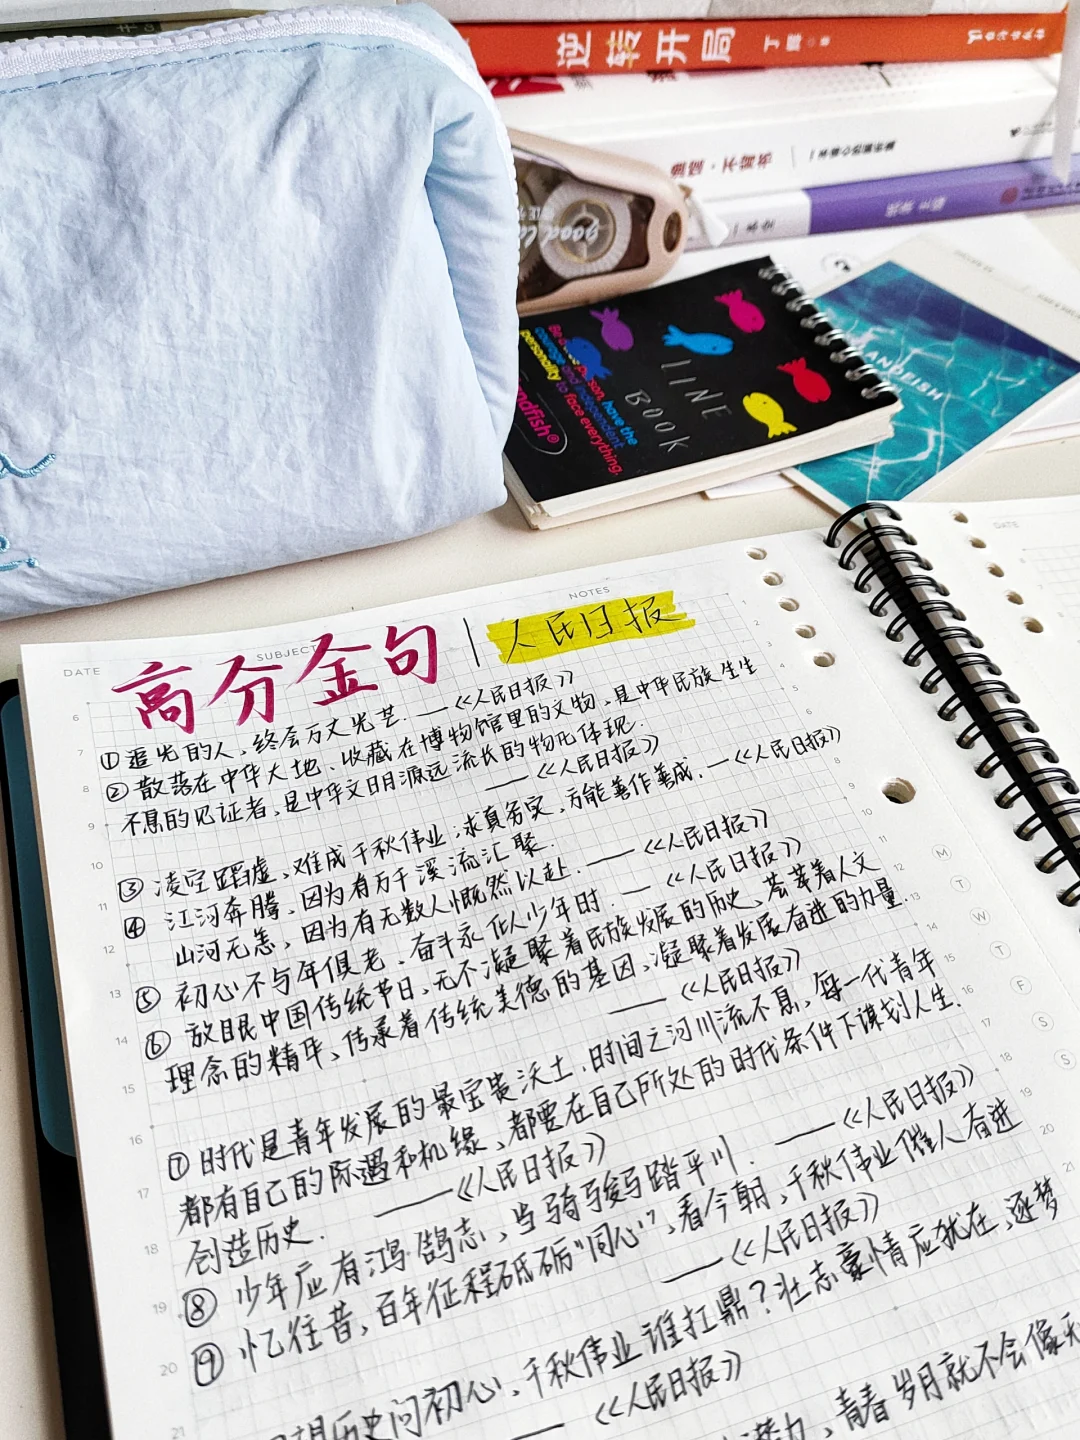 逆转开局 丁
LINE
BOOK
Be a
person, have the
courage and independent
personality to face everything.
ndfish®
ANDFISH
NOTES
DATE
SUBJECT
DATE
高分金句 | 人民日报
①追光的人、终会万丈光芒. ——《人民日报》
②散落在中华大地、收藏在博物馆里的文物、是中华民族生生
不息的见证者、是中华文明源远流长的物化体现.
——《人民日报》
③凌空蹈虚、难成千秋伟业;求真务实、方能善作善成. —《人民日报》
④江河奔腾、因为有万千溪流汇聚.
山河无恙、因为有无数人慨然以赴. ——《人民日报》
⑤初心不与年俱老、奋斗永似少年时. ——《人民日报》
⑥放眼中国传统节日、无不凝聚着民族发展的历史、荟萃着人文
理念的精华、传承着传统美德的基因、凝聚着发展奋进的力量.
——《人民日报》
⑦时代是青年发展的最宝贵沃土、时间之河川流不息、每一代青年
都有自己的际遇和机缘、都要在自己所处的时代条件下谋划人生.
创造历史. ——《人民日报》
⑧少年应有鸿鹄志、当骑骏马踏平川. ——《人民日报》
⑨忆往昔、百年征程砥砺“同心”、看今朝、千秋伟业催人奋进
——《人民日报》
历史问初心、千秋伟业谁扛鼎?壮志豪情应犹在、逐梦
——《人民日报》
力、青春岁月就不会像